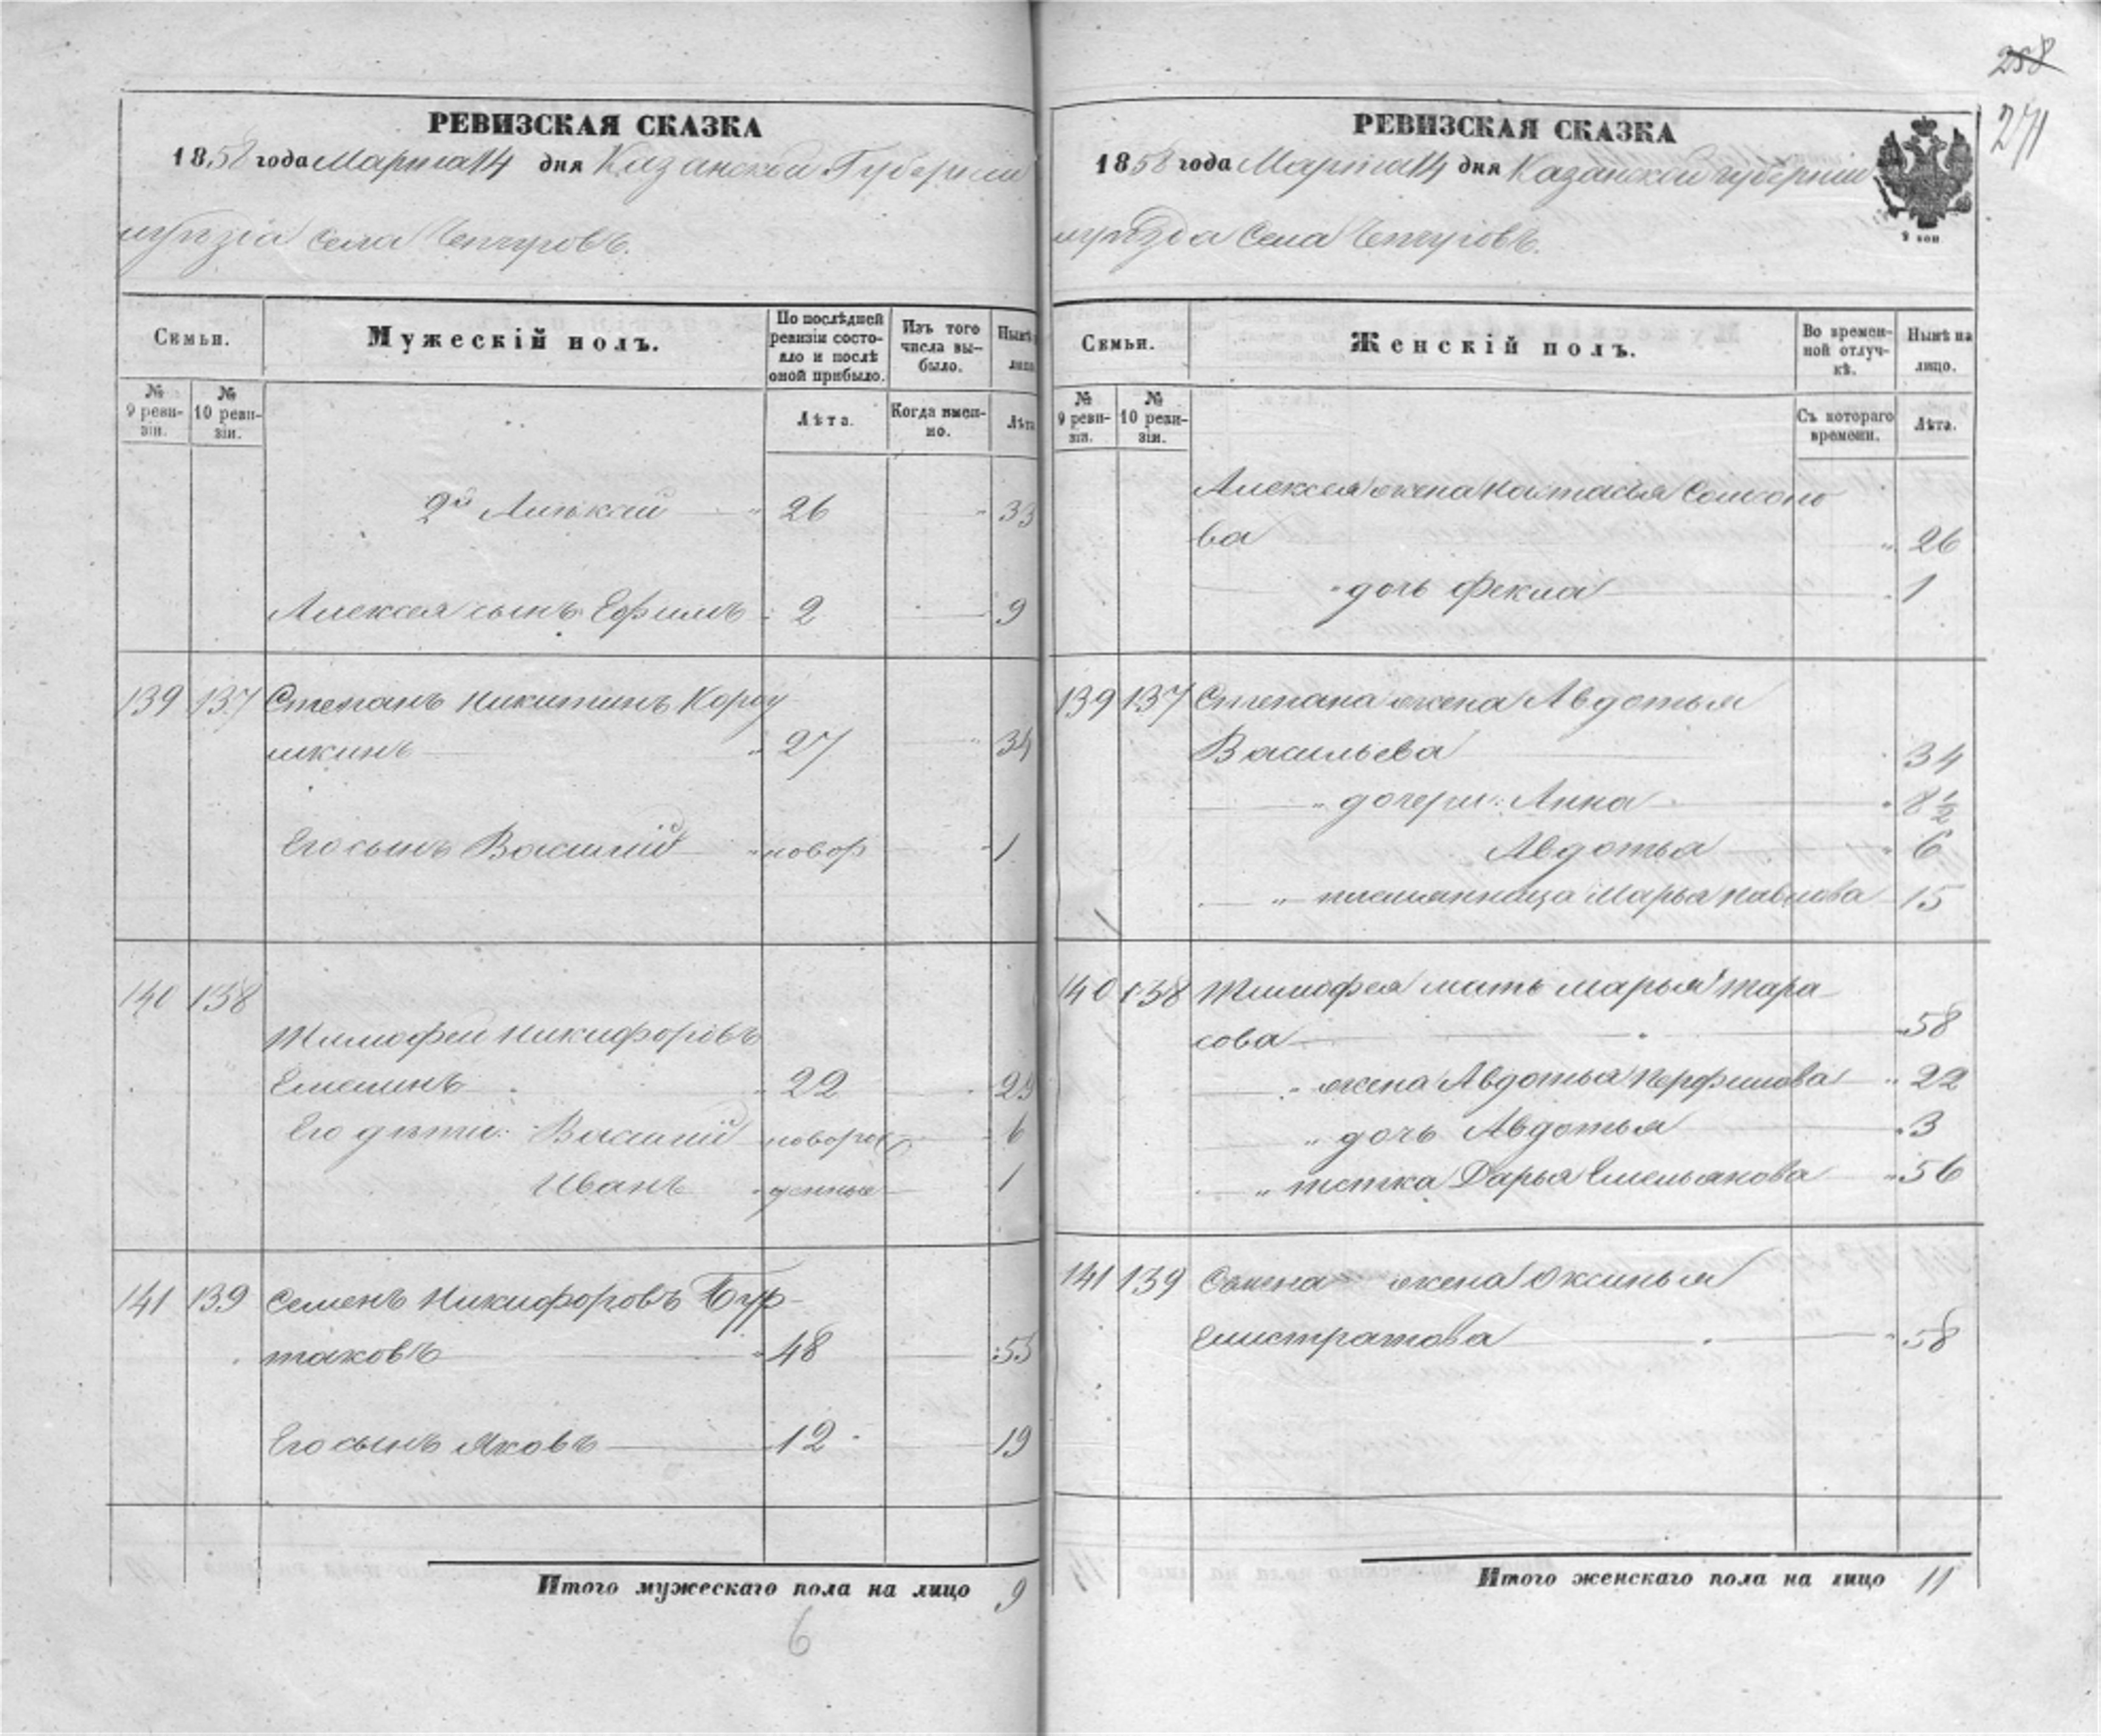 258
271
РЕВИЗСКАЯ СКАЗКА
1858 года Марта 14 дня Казанской Губернии
и уѣзда села Чепчуговъ.
Семьи.
Мужескій полъ.
По послѣдней ревизіи состояло и послѣ оной прибыло.
Изъ того числа выбыло.
Нынѣ
лицо
№ 9 ревизіи.
№ 10 ревизіи.
Лѣта.
Когда именно.
Лѣта
2й Алексѣй 26 33
Алексея сынъ Ефимъ 2 9
139 137 Степанъ Никитинъ Короу
шкинъ 27 34
Его сынъ Василий новор 1
140 138
Тимофей Никифоровъ
Емелинъ 22 29
Его дѣти: Василий новорож 6
Иванъ денные 1
141 139 Семенъ Никифоровъ Бур-
таковъ 48 55
Его сынъ Яковъ 12 19
Итого мужескаго пола на лицо 9
6
РЕВИЗСКАЯ СКАЗКА
1858 года Марта 14 дня Казанской губернии
и уѣзда села Чепчуговъ.
2 коп
Семьи.
Женскій полъ.
Во временной отлучкѣ.
Нынѣ на лицо.
№ 9 ревизіи.
№ 10 ревизіи.
Съ котораго времени.
Лѣта.
Алексея жена Настасья Самсоно
ва 26
дочь Фекла 1
139 137 Степана жена Авдотья
Васильева 34
дочери: Анна 8 1/2
Авдотья 6
племянница Марья Павлова 15
140 138 Тимофея мать Марья Тара-
сова 58
жена Авдотья Перфилова 22
дочь Авдотья 3
тетка Дарья Емельянова 56
141 139 Семена жена Оксинья
Елистратова 58
Итого женскаго пола на лицо 11